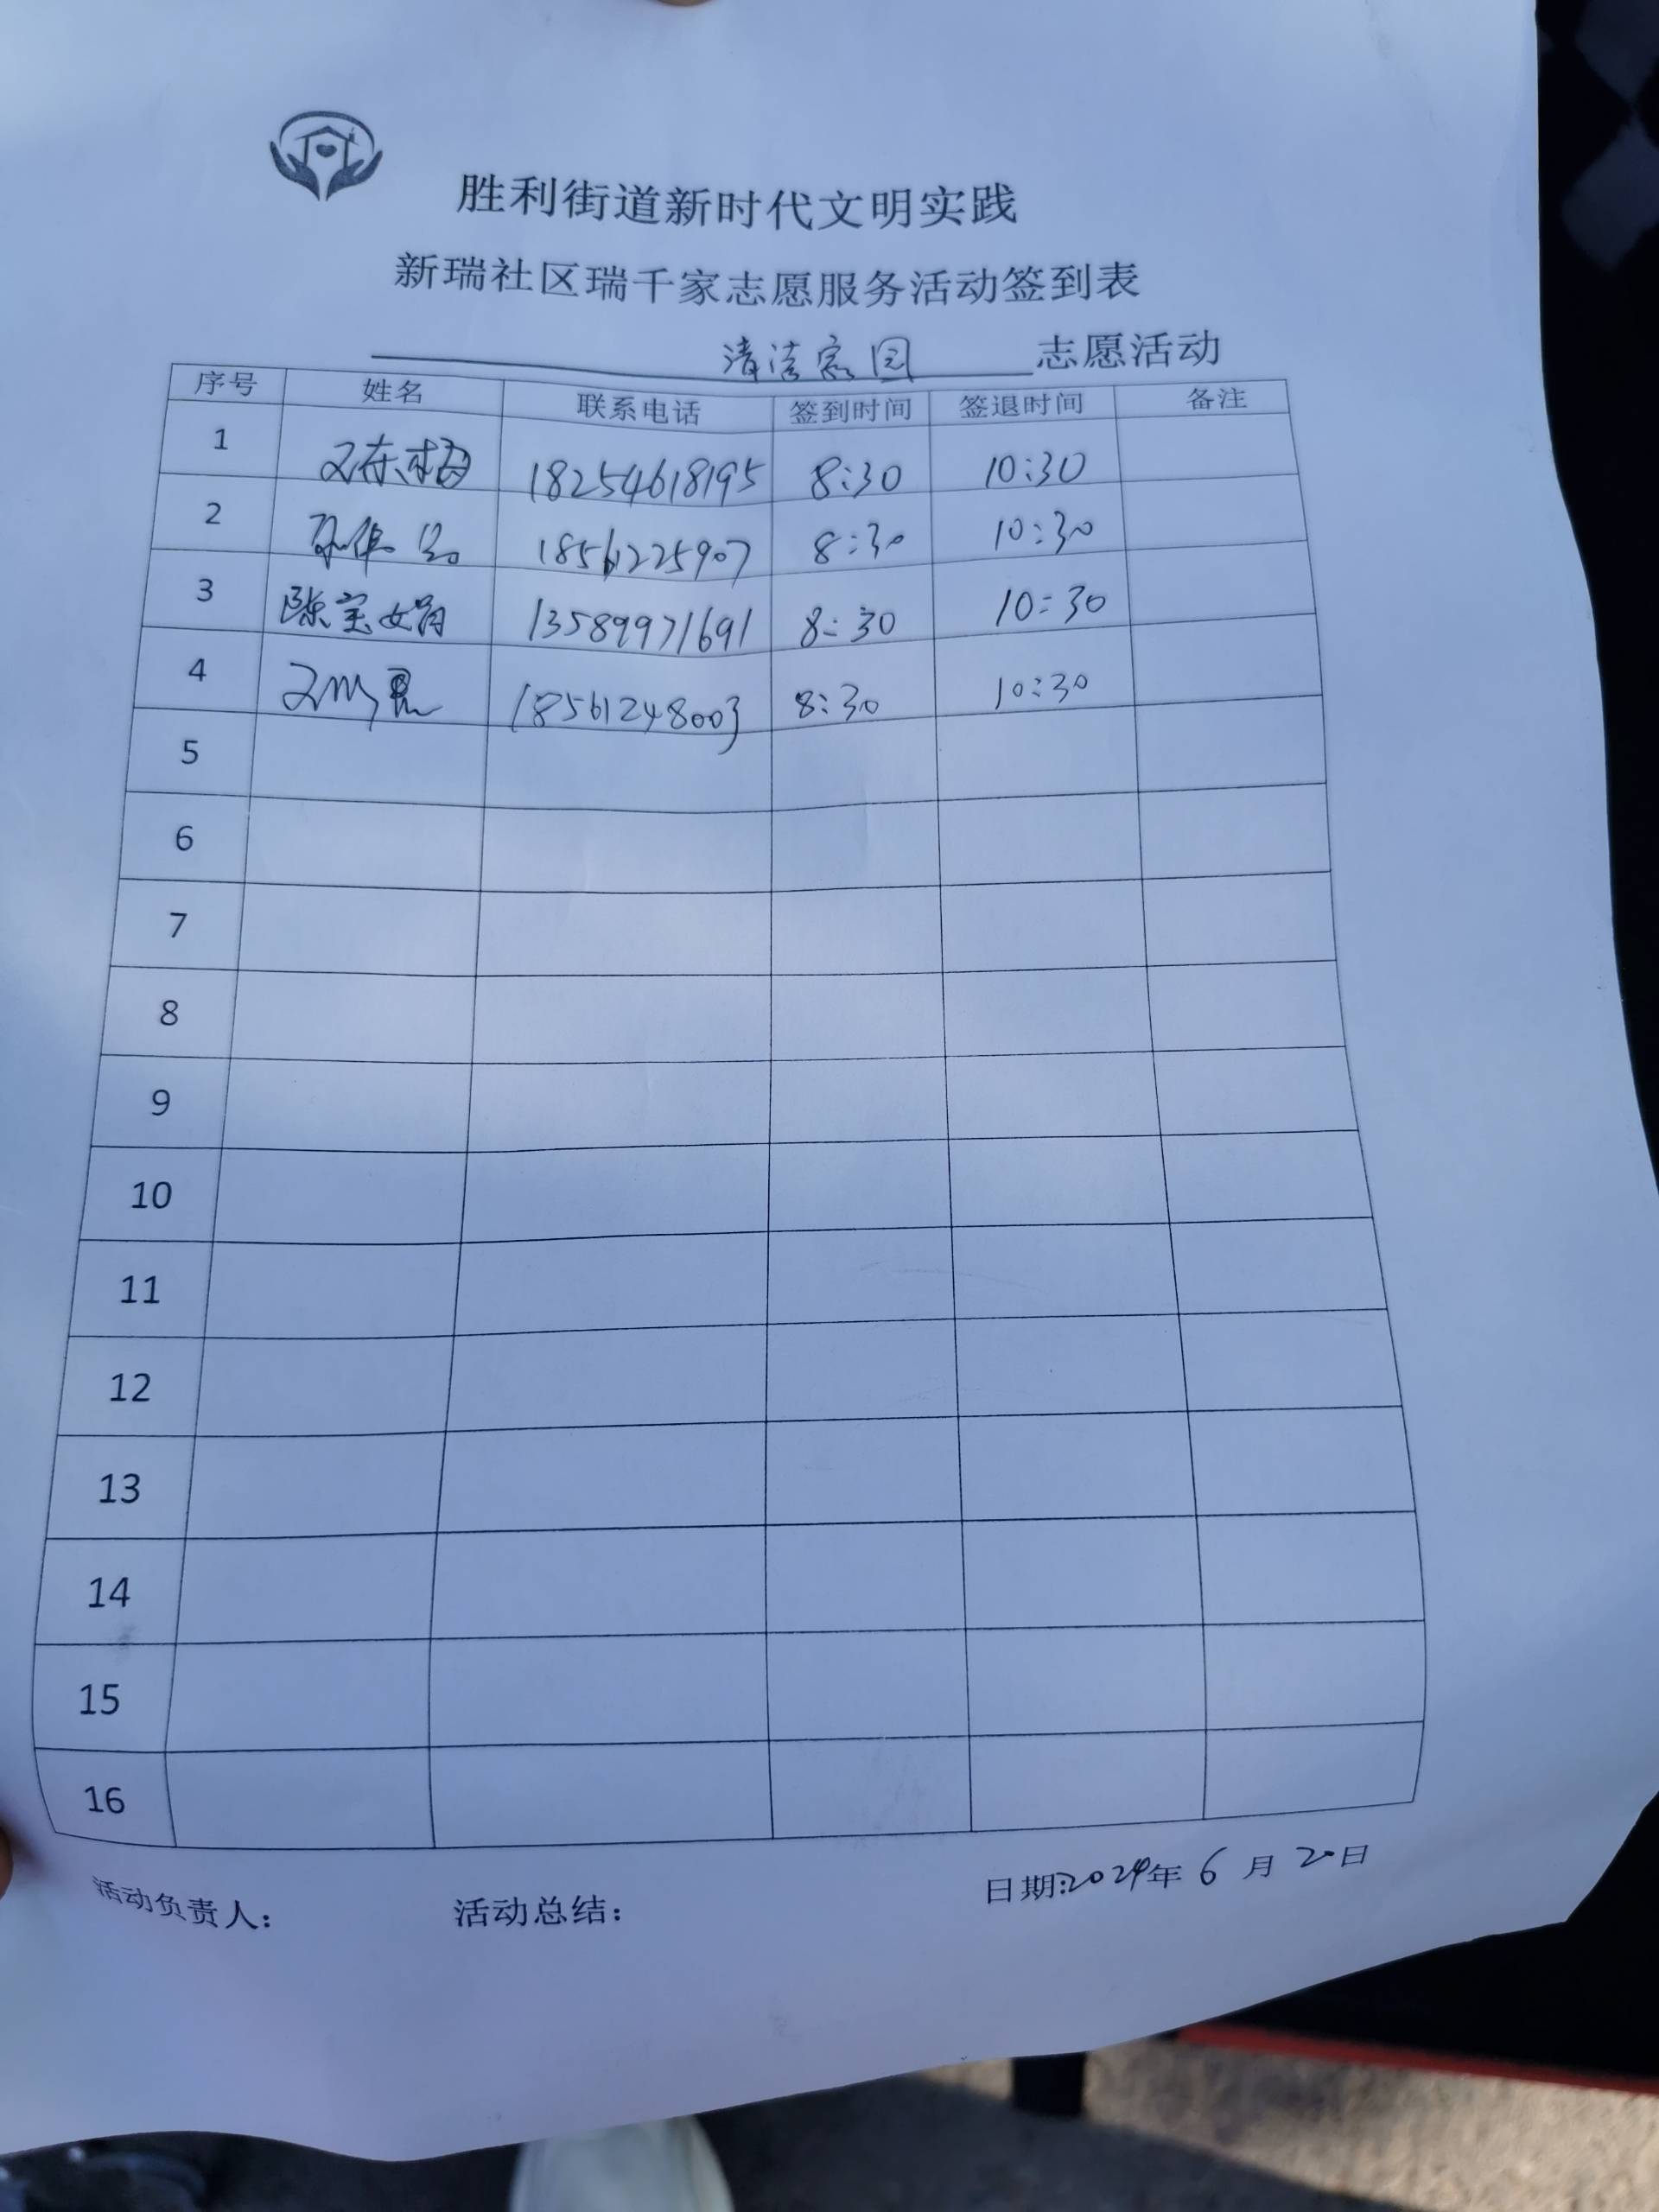 胜利街道新时代文明实践
新瑞社区瑞千家志愿服务活动签到表
清洁家园 志愿活动
序号 姓名 联系电话 签到时间 签退时间 备注
1 18254618195 8:30 10:30
2 18561225907 8:30 10:30
3 陈宝娟 13589971691 8:30 10:30
4 18561248003 8:30 10:30
5
6
7
8
9
10
11
12
13
14
15
16
活动负责人： 活动总结： 日期:2024年6月20日